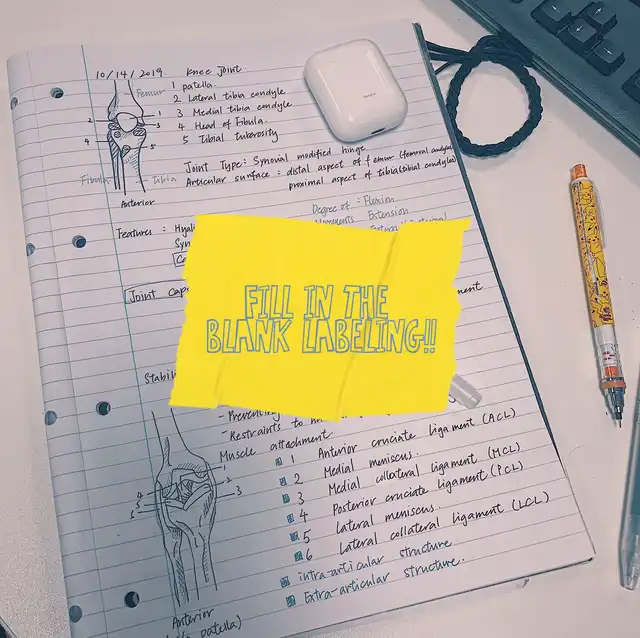 10/14/2019 Knee Joint.
Femur 1 patella.
2 Lateral tibia condyle
1
2 3 3 Medial tibia condyle
4 Head of Fibula.
4 5 5 Tibial tuberosity
Joint Type: Synovial modified hinge
Fibula Tibia Articular surface: distal aspect of femur (femoral condyles
proximal aspect of tibia (tibial condyles)
Anterior
Degree of : Flexion
Features : Hyali
Extension
Syn
Joint Caps
FILL IN THE
BLANK LABELING!!
Stabili
- Preventing
- Restraints to
Muscle attachment.
1 Anterior cruciate ligament (ACL)
2 Medial meniscus.
3 Medial collateral ligament (MCL)
4 Posterior cruciate ligament (PCL)
5 Lateral meniscus.
6 Lateral collateral ligament (LCL)
intra-articular structure
Extra-articular structure.
Anterior
patella)